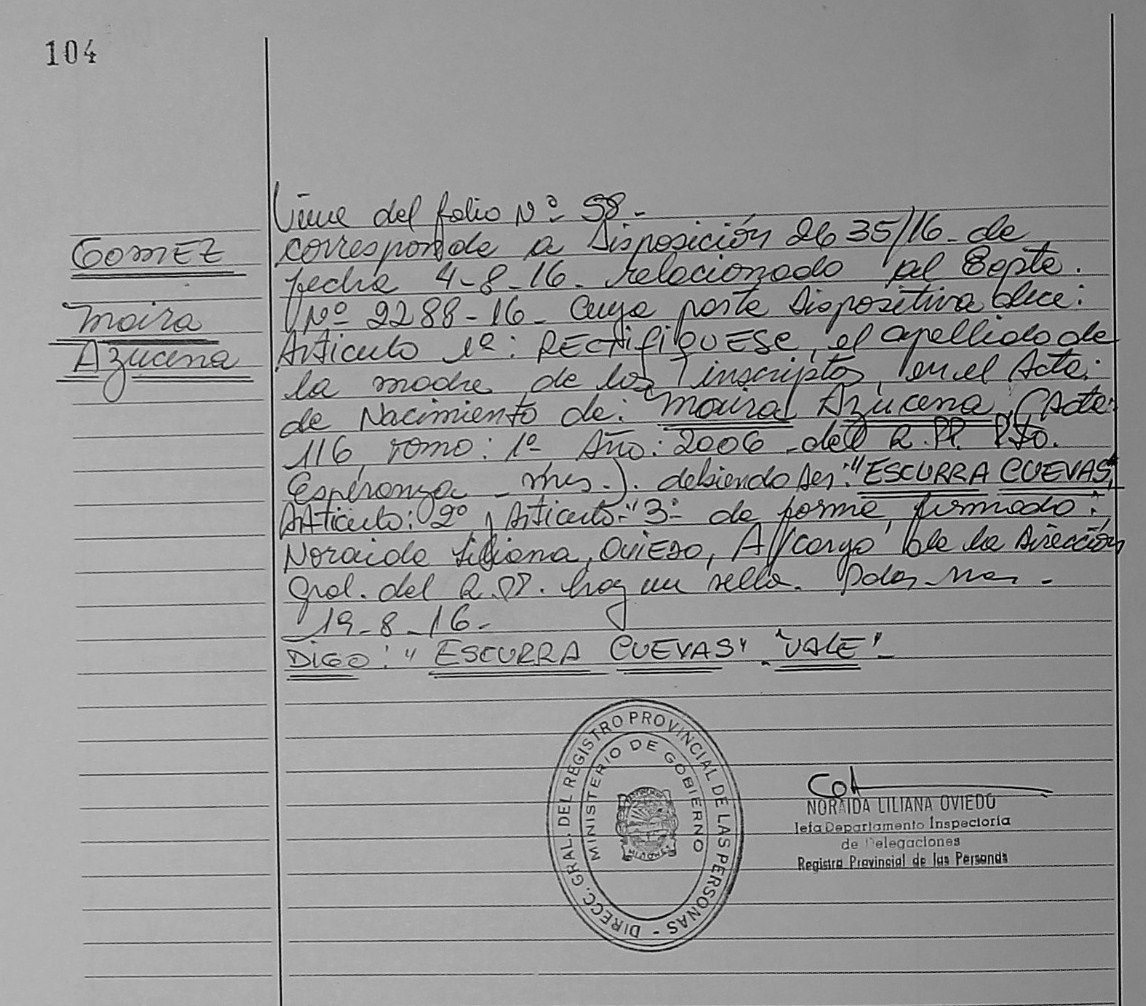 104
GOMEZ
Moira
Azucena
Viene del folio Nº 58.-
corresponde a Disposición 2635/16 - de
fecha 4-8-16 - relacionado al Expte.
Nº 2288-16 - Cuya parte Dispositiva dice:
Articulo 1º: RECTIFIQUESE, el apellido de
la madre de los inscriptos, en el Acta:
de Nacimiento de: Moira Azucena, (Acta:
116, Tomo: 1º Año: 2006 - del R.PP. Pto.
Esperanza - Mnes.). debiendo ser: "ESCURRA CUEVAS"
Articulo: 2º y Articulo: "3º de forma, firmado:
Noraida Liliana, OVIEDO, A/cargo de la Dirección
Gral. del R.PP. hay un sello. Pdas, Mnes.-
19-8-16.-
DIGO: "ESCURRA CUEVAS" "VALE"-
DIRECC. GRAL. DEL REGISTRO PROVINCIAL DE LAS PERSONAS -
MINISTERIO DE GOBIERNO
MISIONES
NORAIDA LILIANA OVIEDO
Jefa Departamento Inspectoría
de Delegaciones
Registro Provincial de las Personas